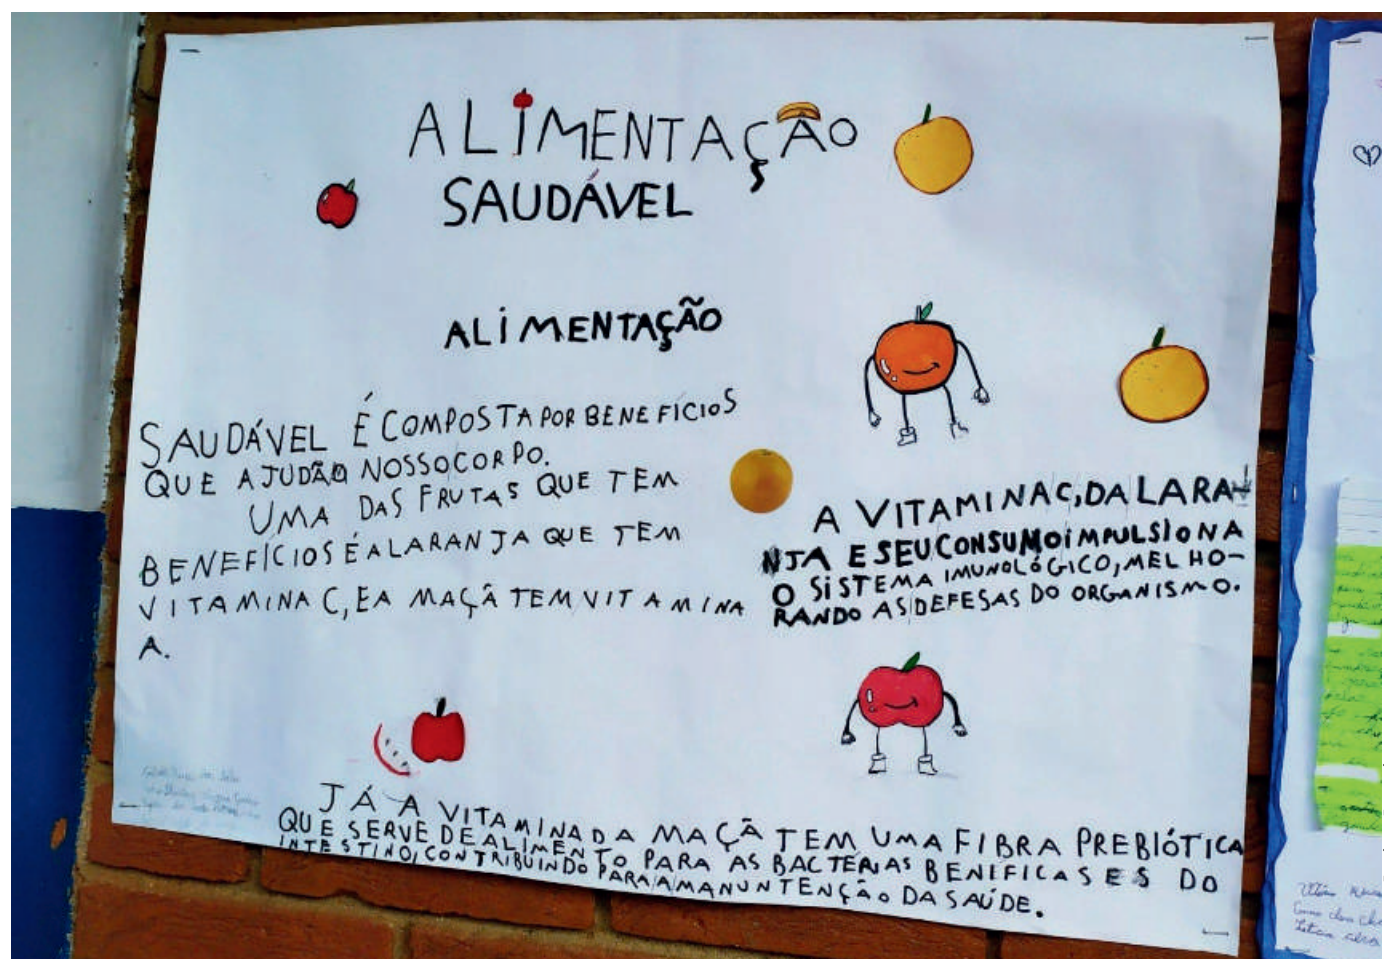 ALIMENTAÇÃO
SAUDÁVEL
ALIMENTAÇÃO
SAUDÁVEL É COMPOSTA POR BENEFÍCIOS
QUE AJUDÃO NOSSO CORPO.
UMA DAS FRUTAS QUE TEM
BENEFÍCIOS É A LARANJA QUE TEM
VITAMINA C, E A MAÇÃ TEM VITAMINA
A.
A VITAMINA C, DA LARA-
NJA E SEU CONSUMO IMPULSIONA
O SISTEMA IMUNOLÓGICO, MELHO-
RANDO AS DEFESAS DO ORGANISMO.
JÁ A VITAMINA DA MAÇÃ TEM UMA FIBRA PREBIÓTICA
QUE SERVE DE ALIMENTO PARA AS BACTÉRIAS BENIFICASES DO
INTESTINO, CONTRIBUINDO PARA A MANUNTENÇÃO DA SAÚDE.